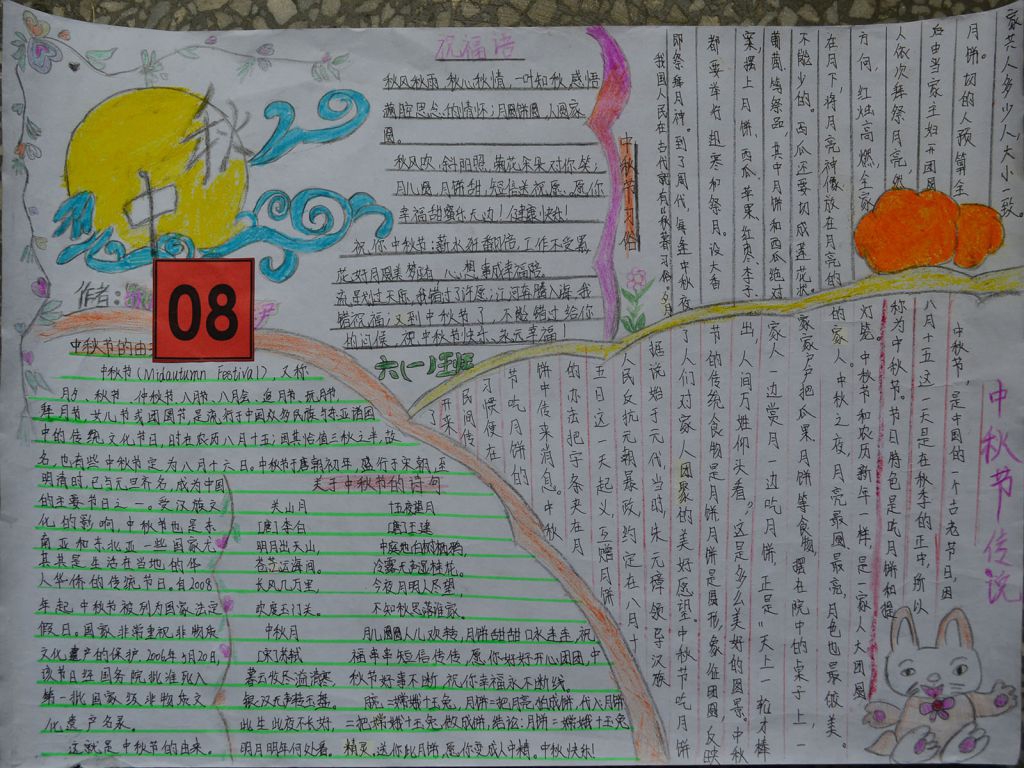 祝福语
秋风秋雨,秋心秋情,一叶知秋,感悟
满腔思念的情怀;月圆饼圆,人圆家
圆。
秋风吹,斜阳照,菊花朵朵对你笑;
月儿圆,月饼甜,短信送祝愿。愿你
幸福甜蜜乐无边!健康快乐!
祝你中秋节:薪水翻番翻倍,工作不受累
花好月圆美梦
心想事成幸福
流星划过天际,我错过了许愿;江河奔腾入海,我
错祝福;又到中秋节了,不能错过给你
的问候,祝中秋节快乐,永远幸福!
秋
中
作者:
08
六(一)班
中秋节的由
中秋节(Midautumn Festival),又称
月夕、秋节、仲秋节、八月节、八月会、追月节、玩月节、
拜月节、女儿节或团圆节,是流行于中国众多民族与东亚诸国
中的传统文化节日,时在农历八月十五;因其恰值三秋之半,故
名,也有些中秋节定为八月十六日。中秋节于唐朝初年,盛行于宋朝,至
明清时,已与元旦齐名,成为中国
的主要节日之一。受汉族文
化的影响,中秋节也是东
南亚和东北亚一些国家尤
其是生活在当地的华
人华侨的传统节日。自2008
年起中秋节被列为国家法定
假日。国家非常重视非物质
文化遗产的保护,2006年5月20日,
该节日经国务院批准列入
第一批国家级非物质文
化遗产名录。
这就是中秋节的由来。
关于中秋节的诗句
关山月
[唐]李白
明月出天山,
苍茫云海间。
长风几万里,
吹度玉门关。
中秋月
[宋]苏轼
暮云收尽溢清寒
银汉无声转玉盘。
此生此夜不长好,
明月明年何处看。
十五夜望月
[唐]王建
中庭地白树栖鸦,
冷露无声湿桂花。
今夜月明人尽望,
不知秋思落谁家。
月儿圆圆人儿欢转,月饼甜甜口水连连,祝
福串串短信传传,愿你好好开心团团,中
秋节好事不断,祝你幸福永不断线。
嫦娥+玉兔,月饼=把月亮怕成饼,代入月饼
=把嫦娥+玉兔做成饼,结论:月饼=嫦娥+玉兔
精灵,送你此月饼愿你变成人中精。中秋快乐!
中秋节习俗
我国人民在古代就有"秋暮夕月"的习俗。夕月
即祭拜月神。到了周代,每逢中秋夜
都要举行迎寒和祭月。设大香
案,摆上月饼、西瓜、苹果、红枣、李子、
葡萄等祭品,其中月饼和西瓜绝对
不能少的。西瓜还要切成莲花状。
在月下,将月亮神像放在月亮的
方向,红烛高燃,全家
人依次拜祭月亮,然
后由当家主妇开团圆
月饼。切的人预算全
家共人多少人,大小一致。
中秋节传说
中秋节,是中国的一个古老节日,因
八月十五这一天是在秋季的正中,所以
称为中秋节。节日特色是吃月饼和提
灯笼。中秋节和农历新年一样,是一家人大团圆
的家人。中秋之夜,月亮最圆、最亮,月色也最皎美。
家家户户把瓜果、月饼等食物,摆在院中的桌子上,一
家人一边赏月一边吃月饼,正是"天上一轮才捧
出,人间万姓仰头看。"这是多么美好的图景。中秋
节的传统食物是月饼,月饼是圆形,象征团圆,反映
了人们对家人团聚的美好愿望。中秋节吃月饼
据说始于元代,当时,朱元璋领导汉族
人民反抗元朝暴政,约定在八月十
五日这一天起义,互赠月饼
的办法把字条夹在月
饼中传来消息。中秋
节吃月饼的
习惯便在
民间传
开来
了。